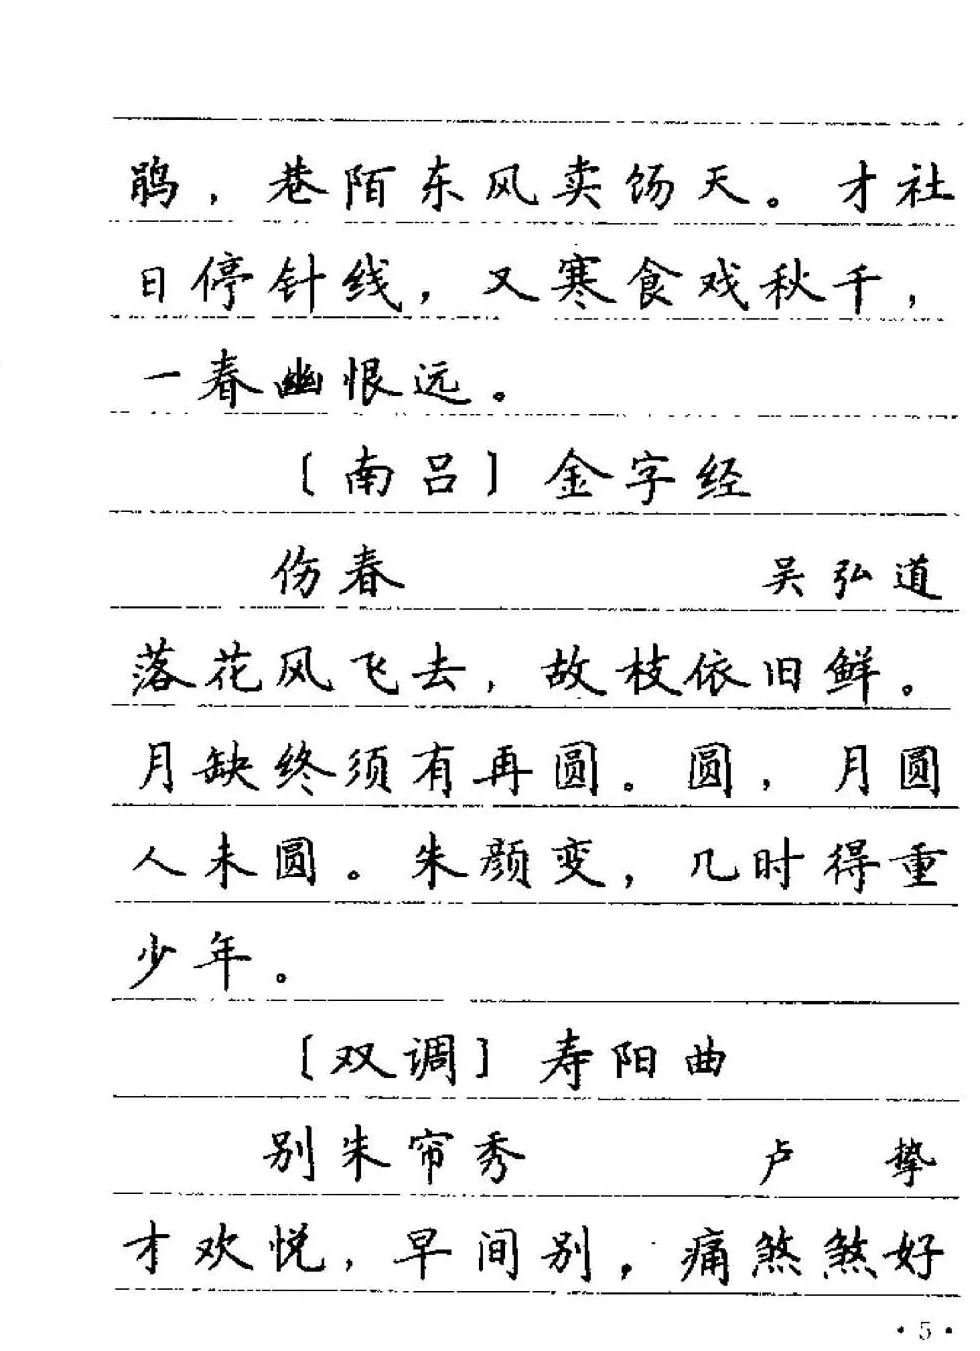 鹃，巷陌东风卖饧天。才社
日停针线，又寒食戏秋千，
一春幽恨远。
〔南吕〕金字经
伤春 吴弘道
落花风飞去，故枝依旧鲜。
月缺终须有再圆。圆，月圆
人未圆。朱颜变，几时得重
少年。
〔双调〕寿阳曲
别朱帘秀 卢挚
才欢悦，早间别，痛煞煞好
·5·